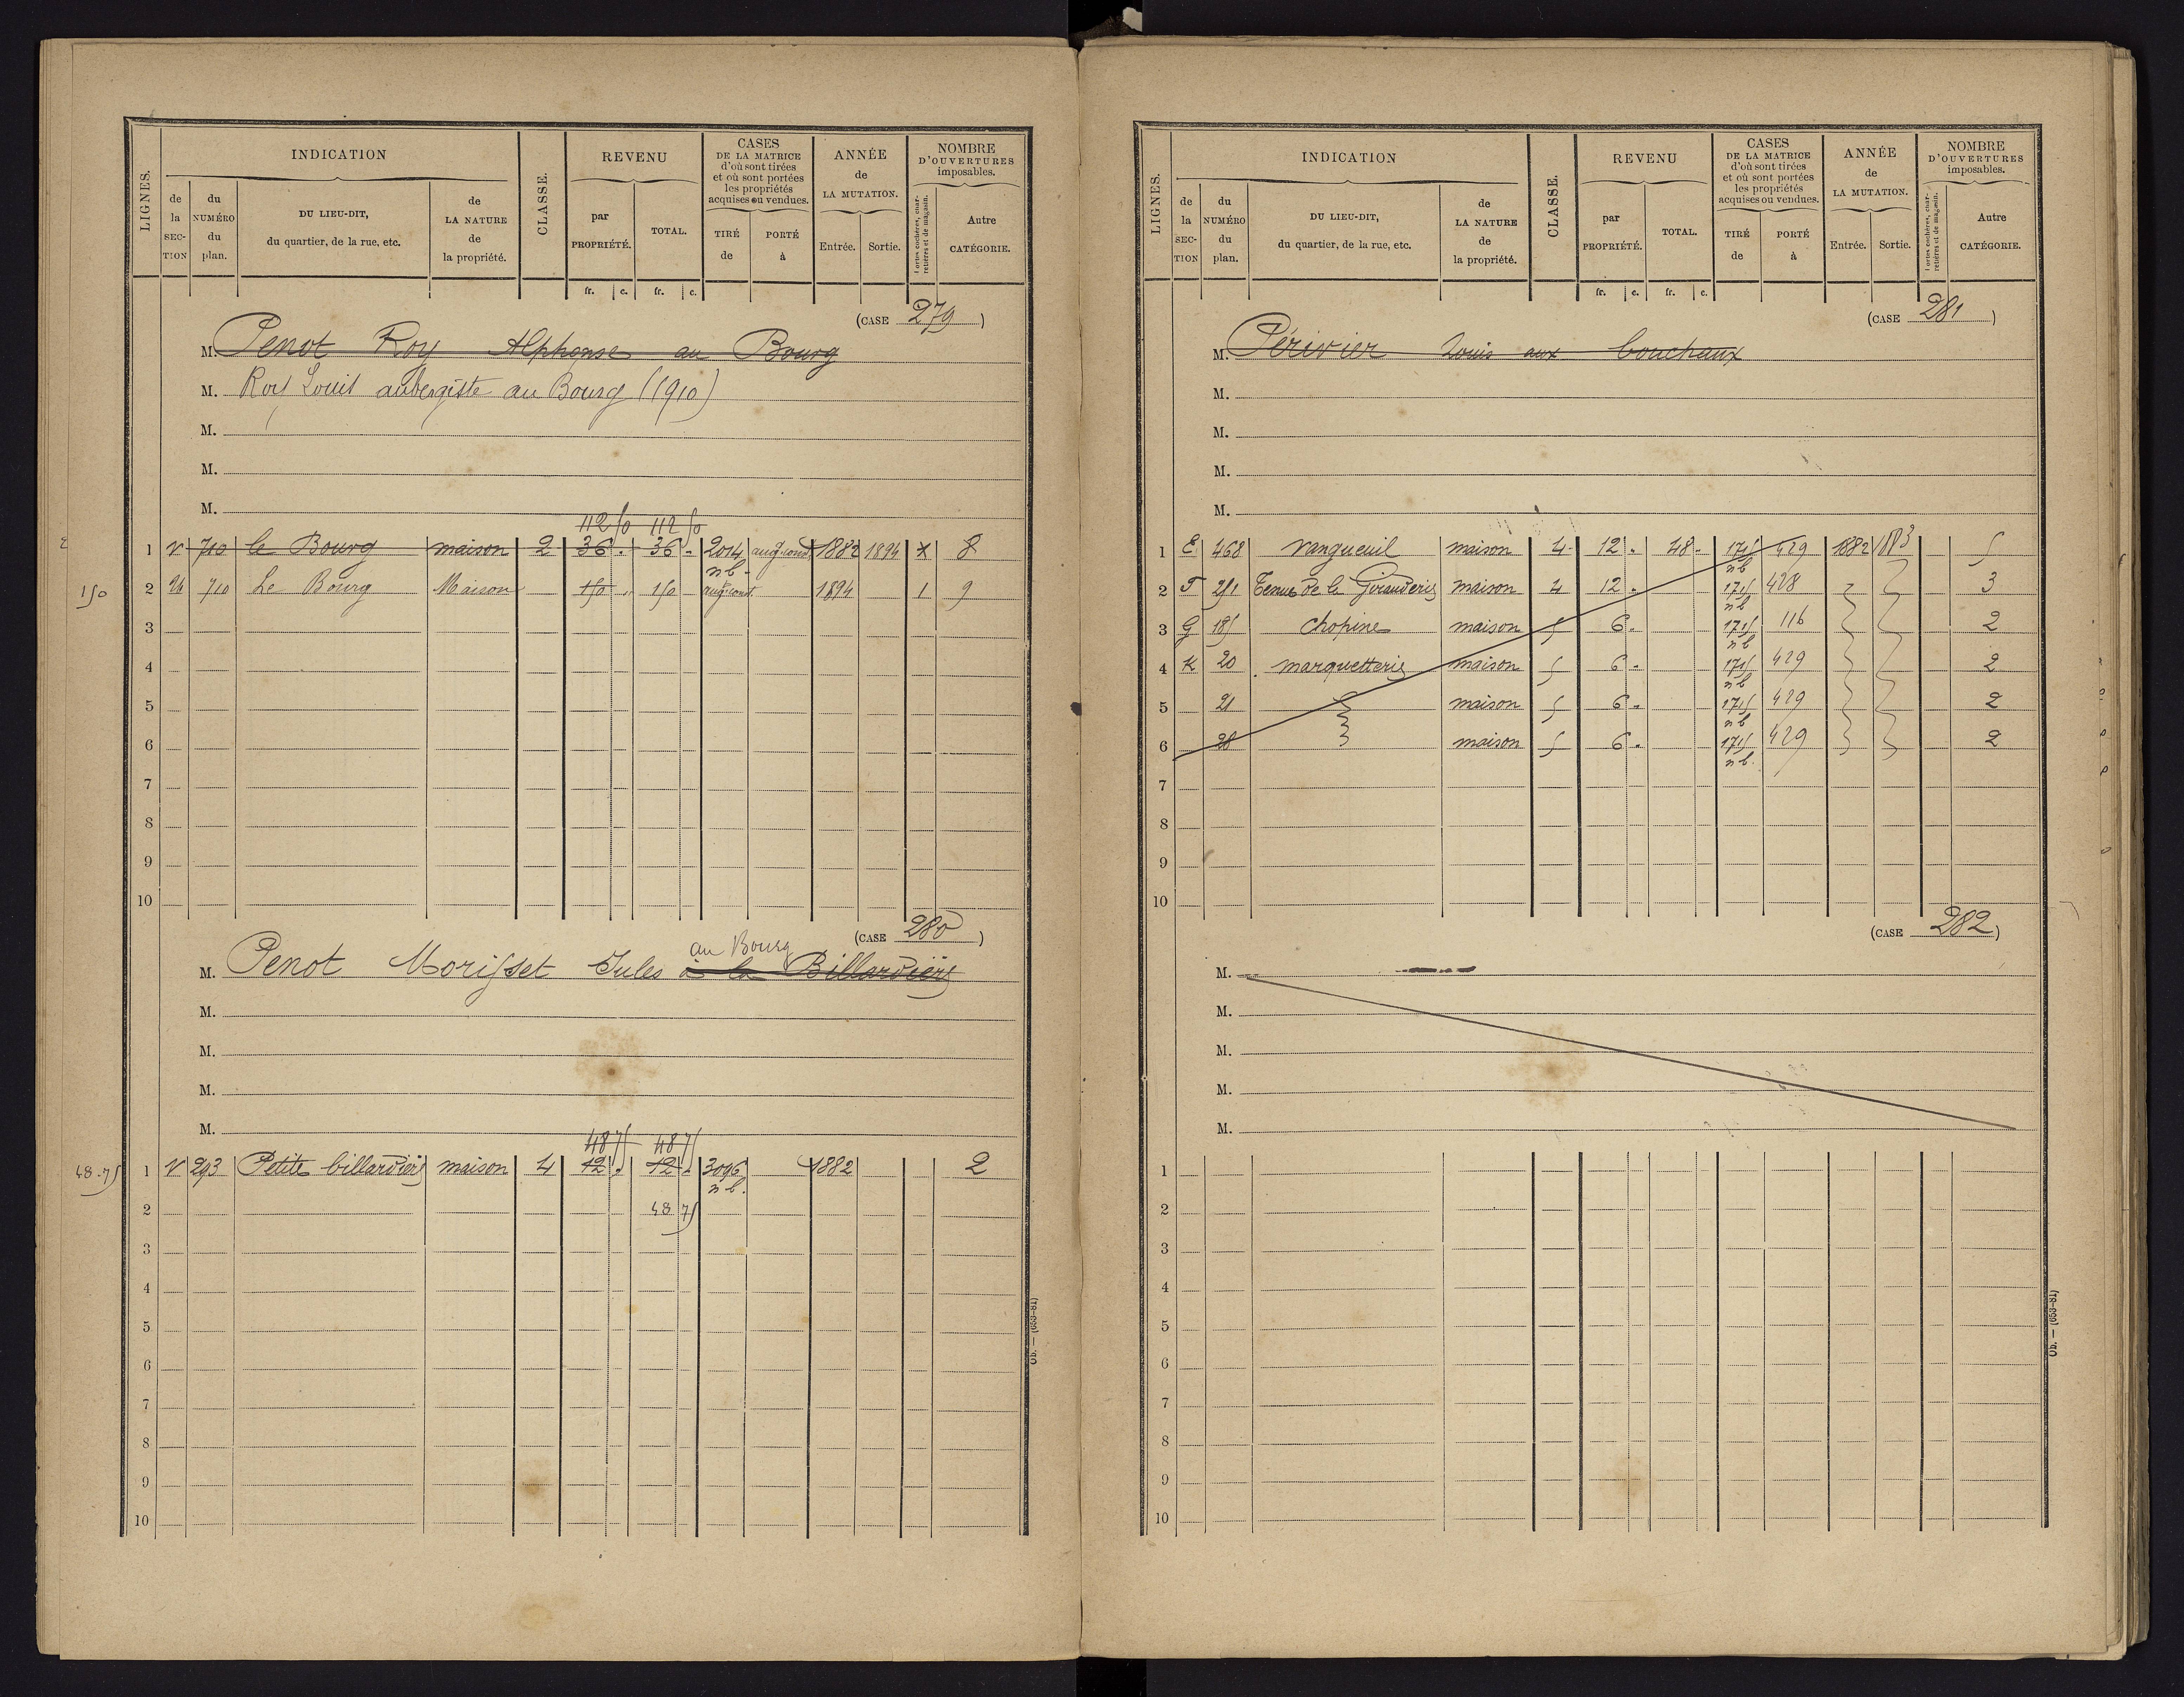 LIGNES.
INDICATION
de la SECTION
du NUMÉRO du plan.
DU LIEU-DIT, du quartier, de la rue, etc.
de LA NATURE de la propriété.
CLASSE.
REVENU
par PROPRIÉTÉ.
TOTAL.
CASES DE LA MATRICE d'où sont tirées et où sont portées les propriétés acquises ou vendues.
TIRÉ de
PORTÉ à
ANNÉE de LA MUTATION.
Entrée.
Sortie.
NOMBRE D'OUVERTURES imposables.
Portes cochères, charretières et de magasin.
Autre CATÉGORIE.
fr. c. fr. c.
(CASE 279)
M. Penot Roy Alphonse au Bourg
M. Roy Louis aubergiste au Bourg (1910)
M.
M.
M.
112 50 112 50
1 V 710 le Bourg maison 2 36 " 36 " 2014 aug. const. 1882 1894 X 8
nb.
150 2 710 Le Bourg Maison 150 " 150 aug. const. 1894 1 9
3
4
5
6
7
8
9
10
(CASE 280)
au Bourg
M. Penot Morisset Jules à la Billardière
M.
M.
M.
M.
48 75 48 75
48.75 1 V 293 Petite billardière maison 4 12 " 12 " 3096 1882 2
nb.
2 48 75
3
4
5
6
7
8
9
10
Ob. — (653-81)
LIGNES.
INDICATION
de la SECTION
du NUMÉRO du plan.
DU LIEU-DIT, du quartier, de la rue, etc.
de LA NATURE de la propriété.
CLASSE.
REVENU
par PROPRIÉTÉ.
TOTAL.
CASES DE LA MATRICE d'où sont tirées et où sont portées les propriétés acquises ou vendues.
TIRÉ de
PORTÉ à
ANNÉE de LA MUTATION.
Entrée.
Sortie.
NOMBRE D'OUVERTURES imposables.
Portes cochères, charretières et de magasin.
Autre CATÉGORIE.
fr. c. fr. c.
(CASE 281)
M. Périvier Louis aux bouchaux
M.
M.
M.
M.
1 E 468 vangueuil maison 4 12 " 48 " 1715 429 1882 1883 5
nb
2 F 251 Tenue de la Girauderie maison 4 12 " 1715 428 3
nb
3 G 185 chopine maison 5 6 " 1715 116 2
nb
4 K 20 marquetterie maison 5 6 " 1715 429 2
nb
5 21 maison 5 6 " 1715 429 2
nb
6 28 maison 5 6 " 1715 429 2
nb.
7
8
9
10
(CASE 282)
M.
M.
M.
M.
M.
1
2
3
4
5
6
7
8
9
10
Ob. — (653-81)